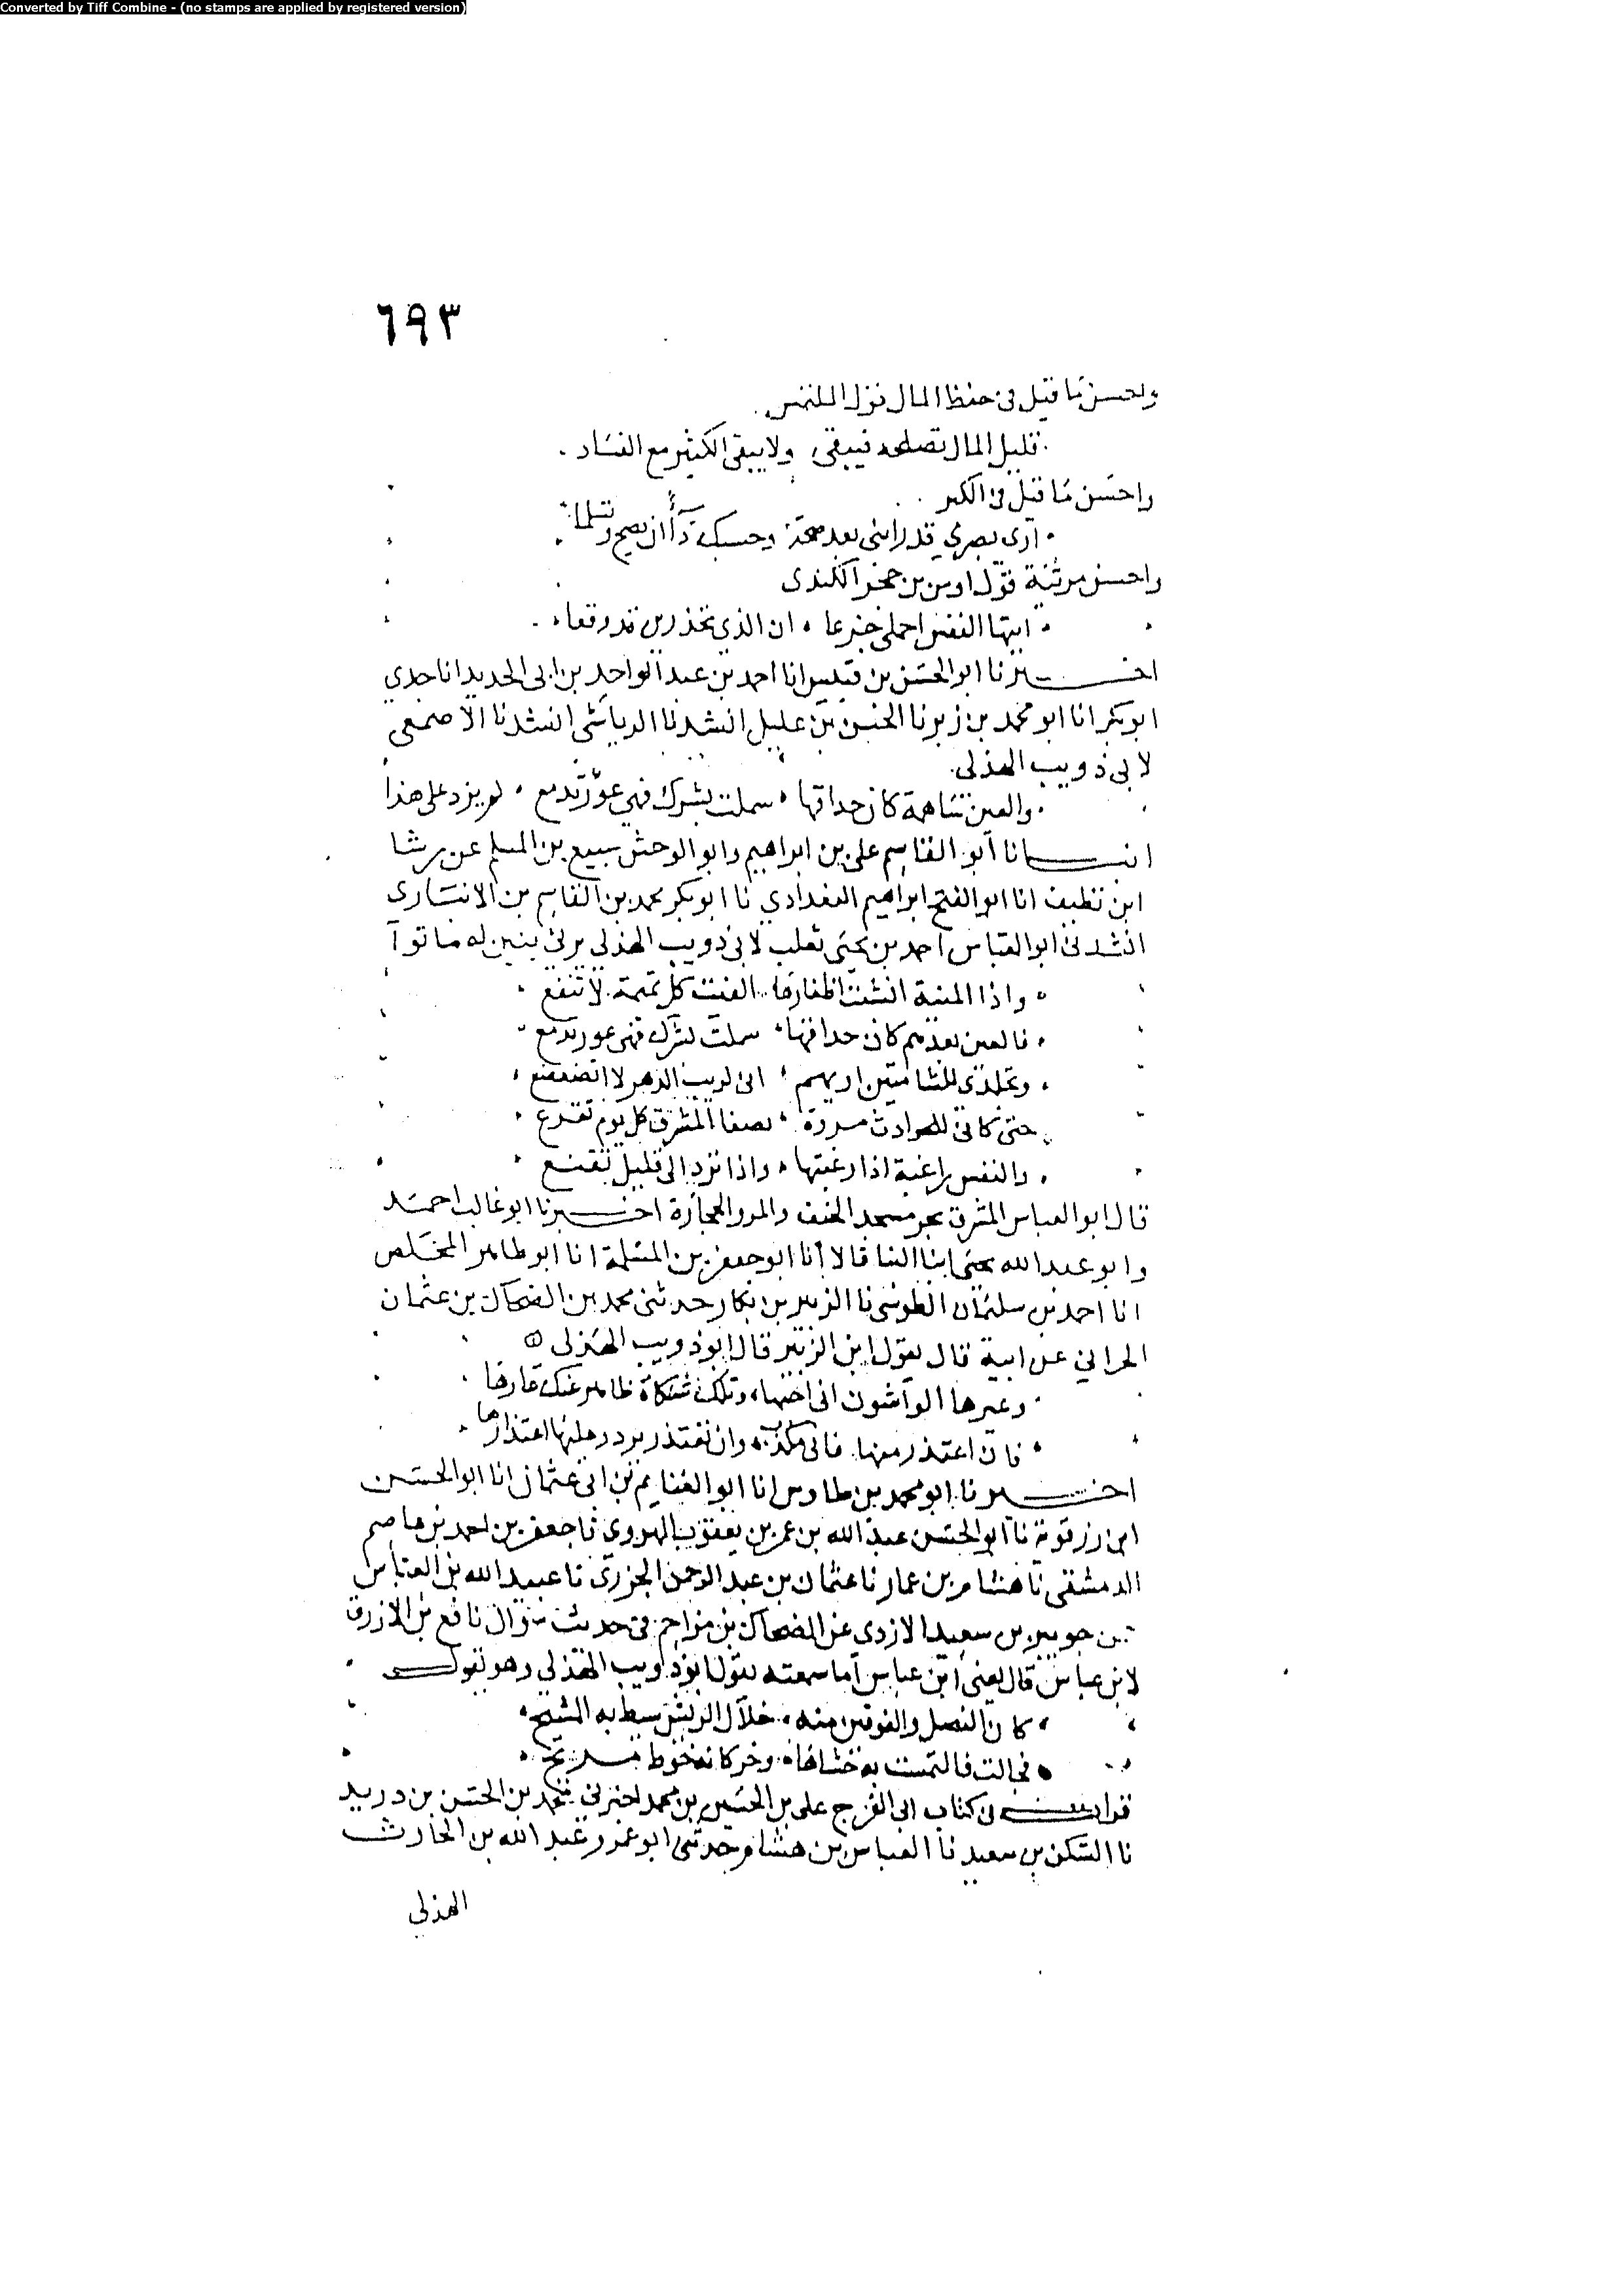 Converted by Tiff Combine - (no stamps are applied by registered version)
٦٩٣
واحسن ما قيل في حفظ المال قول المتلمس
قليل المال تصلحه فيبقى ولا يبقى الكثير مع الفساد
واحسن ما قيل في الكبر
أرى بصري قد رابني بعد صحة وحسبك داأ ان تصح وتسلما
واحسن مرثية قول اوس بن حجر الكندي
ايتها النفس اجملي جزعا ان الذي تحذرين قد وقعا
اخبرنا ابو الحسن بن قبيس انا احمد بن عبد الواحد بن ابى الحديد انا جدي
ابو بكر انا ابو محمد بن زبر نا الحسن بن عليل انشدنا الرياشى انشدنا الاصمعى
لابى ذويب الهذلى
والعين كان حداقها سملت بشوك فهي عور تدمع لم يزد على هذا
انبانا ابو القاسم على بن ابراهيم وابو الوحش سبيع بن المسلم عن رشا
ابن نظيف انا ابو الفتح ابراهيم البغدادي نا ابو بكر محمد بن القاسم بن الانباري
انشدنى ابو العباس احمد بن يحيى ثعلب لابى ذويب الهذلى يرثى بنين له ماتوا
واذا المنية انشبت اظفارها الفيت كل تميمة لا تنفع
فالعين بعدهم كان حداقها سملت بشوك فهي عور تدمع
وتجلدي للشامتين اريهم انى لريب الدهر لا اتضعضع
حتى كانى للحوادث مروة بصفا المشرق كل يوم تقرع
والنفس راغبة اذا رغبتها واذا ترد الى قليل تقنع
قال ابو العباس المشرق مسجد الخيف والمرو الحجارة اخبرنا ابو غالب احمد
وابو عبد الله يحيى ابنا البنا قالا انا ابو جعفر بن المسلمة انا ابو طاهر المخلص
انا احمد بن سليمان الطوسى نا الزبير بن بكار حدثنى محمد بن الضحاك بن عثمان
الحراني عن ابيه قال يقول ابن الزبير قال ابو ذويب الهذلى
وعيرها الواشون انى احبها وتلك شكاة ظاهر عنك عارها
فان اعتذر منها فانى مكذب وان تعتذر يردد عليها اعتذارها
اخبرنا ابو محمد بن طاوس انا ابو الغنايم بن ابى عثمان انا ابو الحسن
ابن رزقوية نا ابو الحسن عبد الله بن عمر بن يعقوب الهروي نا جعفر بن احمد بن عاصم
الدمشقى نا هشام بن عمار نا عثمان بن عبد الرحمن الجزري نا عبيد الله بن العباس
عن جويبر بن سعيد الازدي عن الضحاك بن مزاحم في حديث سوال نافع بن الازرق
لابن عباس قال يعنى ابن عباس أما سمعته بقول ابو ذويب الهذلي وهو يقول
كان النصل والفوقين منه خلال الريش سيط به المشيج
فجالت فالتمست به حشاها وخر كانه خوط مريج
قرات في كتاب ابى الفرج على بن الحسين بن محمد اخبرني محمد بن الحسن بن دريد
نا السكن بن سعيد نا العباس بن هشام حدثنى ابو عمرو عبد الله بن الحارث
الهذلي